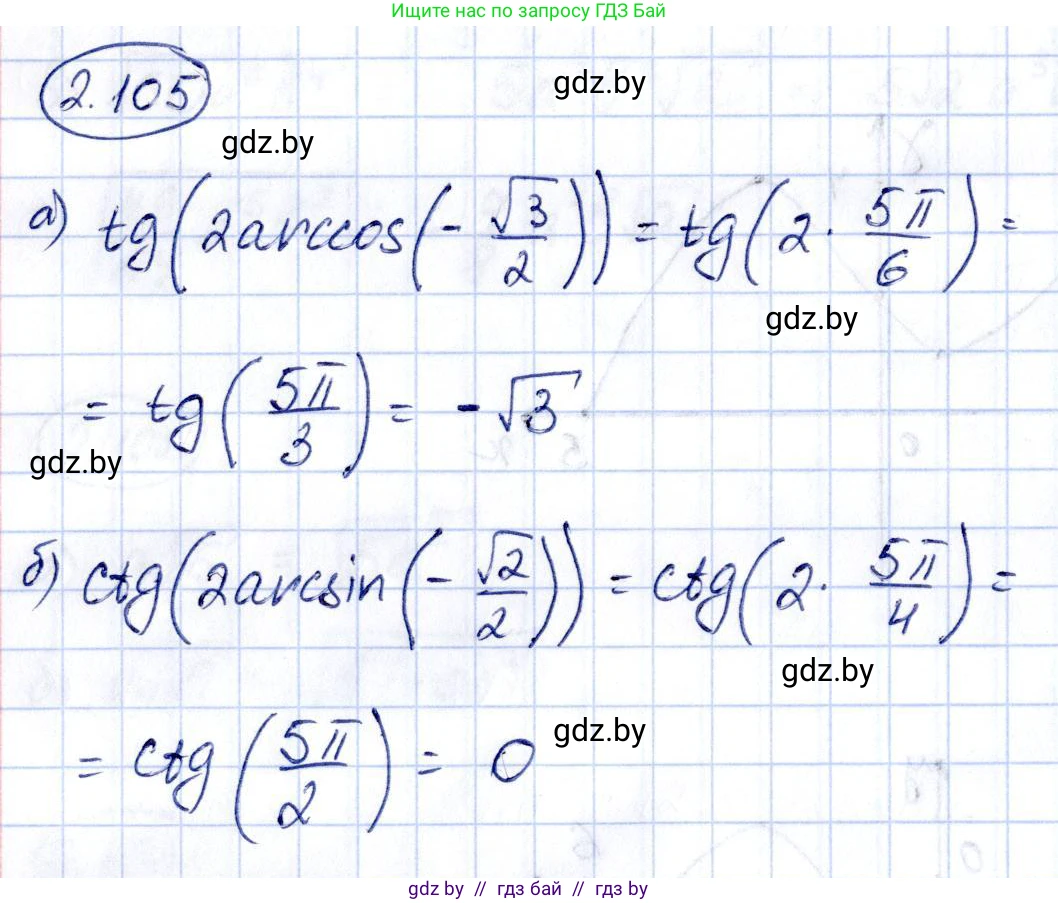 Ищите нас по запросу ГДЗ Бай
2.105
gdz.by
gdz.by
а) tg(2arccos(-√3/2)) = tg(2·5π/6) =
gdz.by
= tg(5π/3) = -√3
gdz.by
б) ctg(2arcsin(-√2/2)) = ctg(2·5π/4) =
gdz.by
= ctg(5π/2) = 0
gdz.by
gdz.by // гдз бай // гдз by